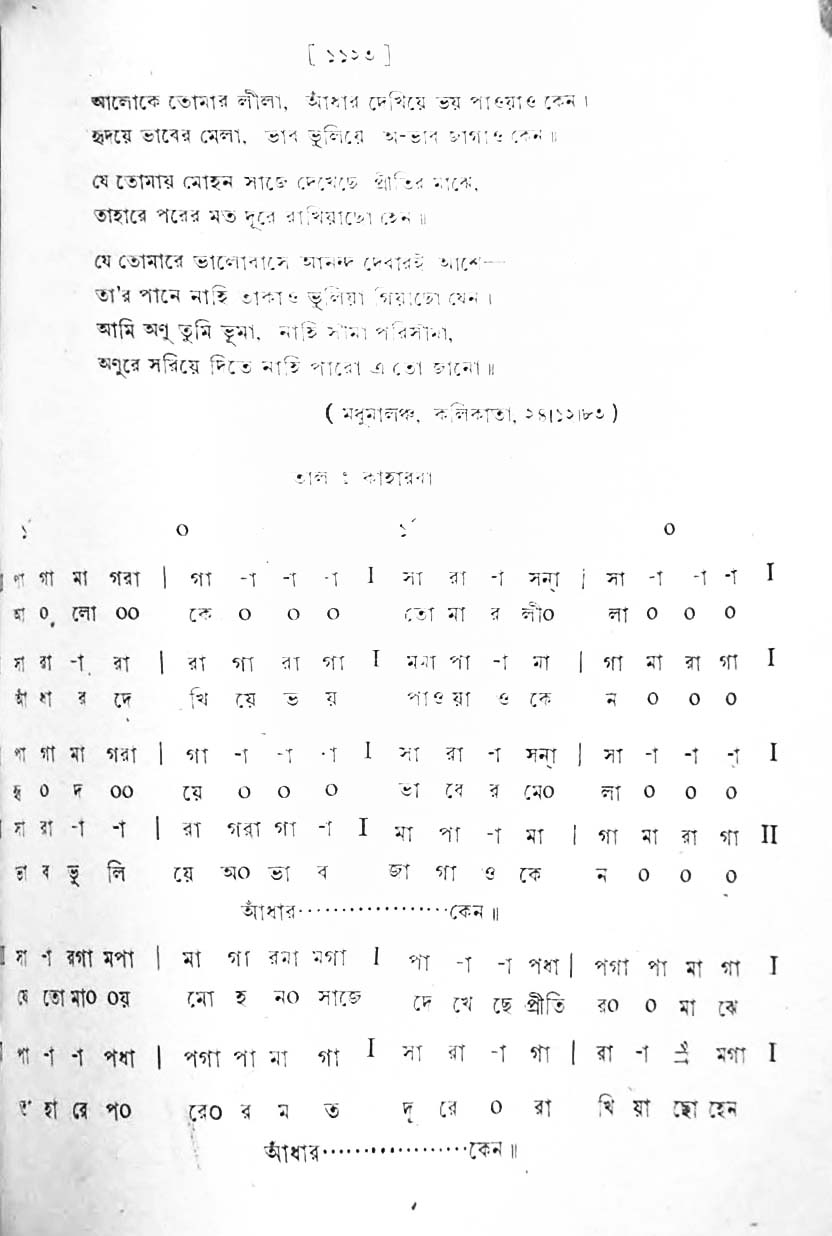 [ ১১২৩ ]
আলোকে তোমার লীলা, আঁধার দেখিয়ে ভয় পাওয়াও কেন।
হৃদয়ে ভাবের মেলা, ভাব ভুলিয়ে অ-ভাব জাগাও কেন॥
যে তোমায় মোহন সাজে দেখেছে প্রীতির মাঝে,
তাহারে পরের মত দূরে রাখিয়াছো হেন॥
যে তোমারে ভালোবাসে আনন্দ দেবারই আশে—
তা'র পানে নাহি তাকাও ভুলিয়া গিয়াছো যেন।
আমি অণু তুমি ভূমা, নাহি সীমা পরিসীমা,
অণুরে সরিয়ে দিতে নাহি পারো এ তো জানো॥
( মধুমালঞ্চ, কলিকাতা, ২৪।১২।৮৩ )
তাল ঃ কাহারবা
১´ ০ ১´ ০
পা গা মা গরা | গা -া -া -া I সা রা -া সন্া | সা -া -া -া I
আ ০ লো ০০ কে ০ ০ ০ তো মা র লী০ লা ০ ০ ০
সা রা -া রা | রা গা রা গা I মমা পা -া মা | গা মা রা গা I
আঁ ধা র দে খি য়ে ভ য় পাও য়া ও কে ন ০ ০ ০
পা গা মা গরা | গা -া -া -া I সা রা -া সন্া | সা -া -া -া I
হৃ ০ দ ০০ য়ে ০ ০ ০ ভা বে র মে০ লা ০ ০ ০
সা রা -া -া | রা গরা গা -া I মা পা -া মা | গা মা রা গা II
ভা ব ভু লি য়ে অ০ ভা ব জা গা ও কে ন ০ ০ ০
আঁধার··················কেন॥
সা -া রগা মপা | মা গা রমা মগা I পা -া -া পধা | পগা পা মা গা I
যে তো মা০ ০য় মো হ ন০ সাজে দে খে ছে প্রীতি র০ ০ মা ঝে
পা -া -া পধা | পগা পা মা গা I সা রা -া গা | রা -া মগা I
তা হা রে প০ রে০ র ম ত দূ রে ০ রা খি য়া ছো হেন
আঁধার··················কেন॥